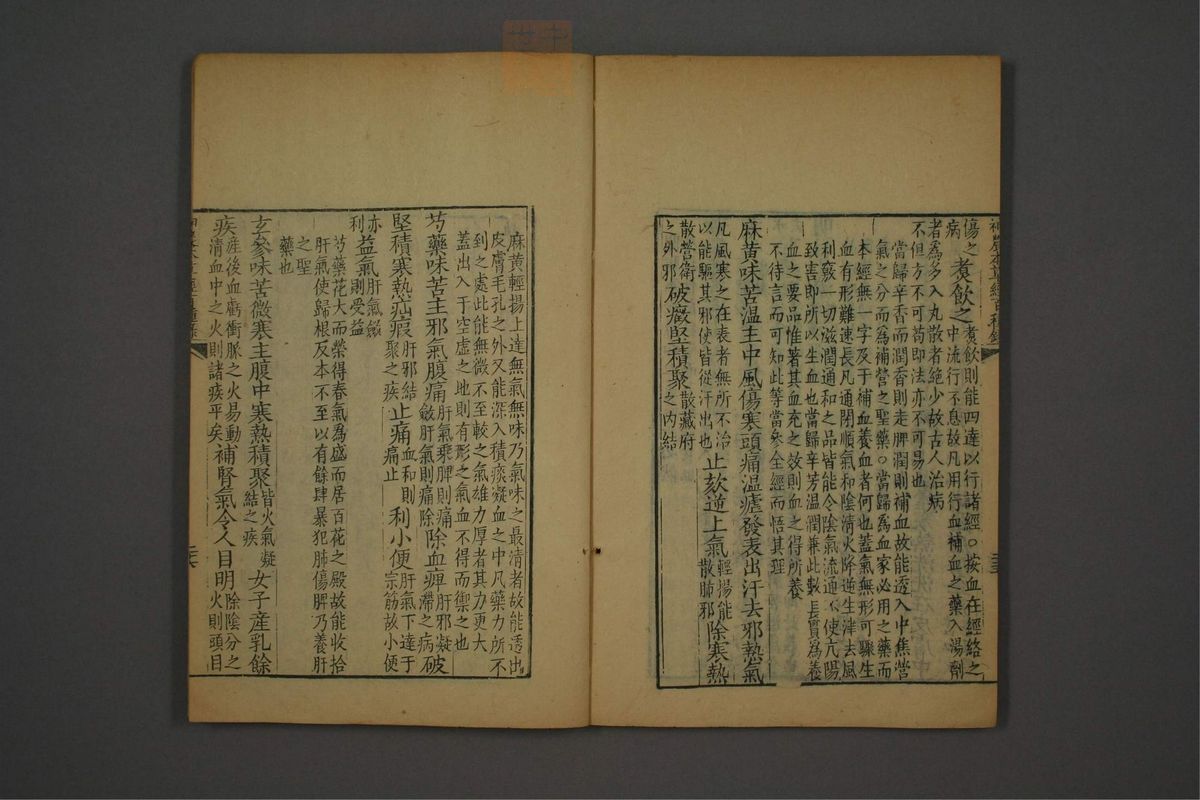 神農本草經百種錄
傷之病煮飲之煮飲則能四達以行諸經○按血在經絡之中流行不息故凡用行血補血之藥入湯劑
者為多入丸散者絕少故古人治病不但方不可苟即法亦不可易也
當歸辛香而潤香則走脾潤則補血故能透入中焦營
氣之分而為補營之聖藥○當歸為血家必用之藥而
本經無一字及于補血養血者何也蓋氣無形可驟生
血有形難速長凡通閉順氣和陰清火降逆生津去風
利竅一切滋潤通和之品皆能令陰氣流通使亢陽
致害即所以生血也當歸辛芳温潤兼此數長實為養
血之要品惟著其血充之效則血之得所養
不待言而可知此等當參全經而悟其理
麻黄味苦温主中風傷寒頭痛温瘧發表出汗去邪熱氣
凡風寒之在表者無所不治以能驅其邪使皆從汗出也止欬逆上氣輕揚能散肺邪除寒熱
散營衛之外邪破癥堅積聚散藏府之内結
麻黄輕揚上達無氣無味乃氣味之最清者故能透出
皮膚毛孔之外又能深入積痰凝血之中凡藥力所不
到之處此能無微不至較之氣雄力厚者其力更大
蓋出入于空虚之地則有形之氣血不得而禦之也
芍藥味苦主邪氣腹痛肝氣乘脾則痛斂肝氣則痛除除血痺肝邪凝滯之病破
堅積寒熱疝瘕肝邪結聚之疾止痛血和則痛止利小便肝氣下達于宗筋故小便
亦利益氣肝氣斂則受益
芍藥花大而榮得春氣為盛而居百花之殿故能收拾
肝氣使歸根反本不至以有餘肆暴犯肺傷脾乃養肝
之聖藥也
玄參味苦微寒主腹中寒熱積聚皆火氣凝結之疾女子產乳餘
疾產後血虧衝脈之火易動清血中之火則諸疾平矣補腎氣令人目明除陰分之火則頭目